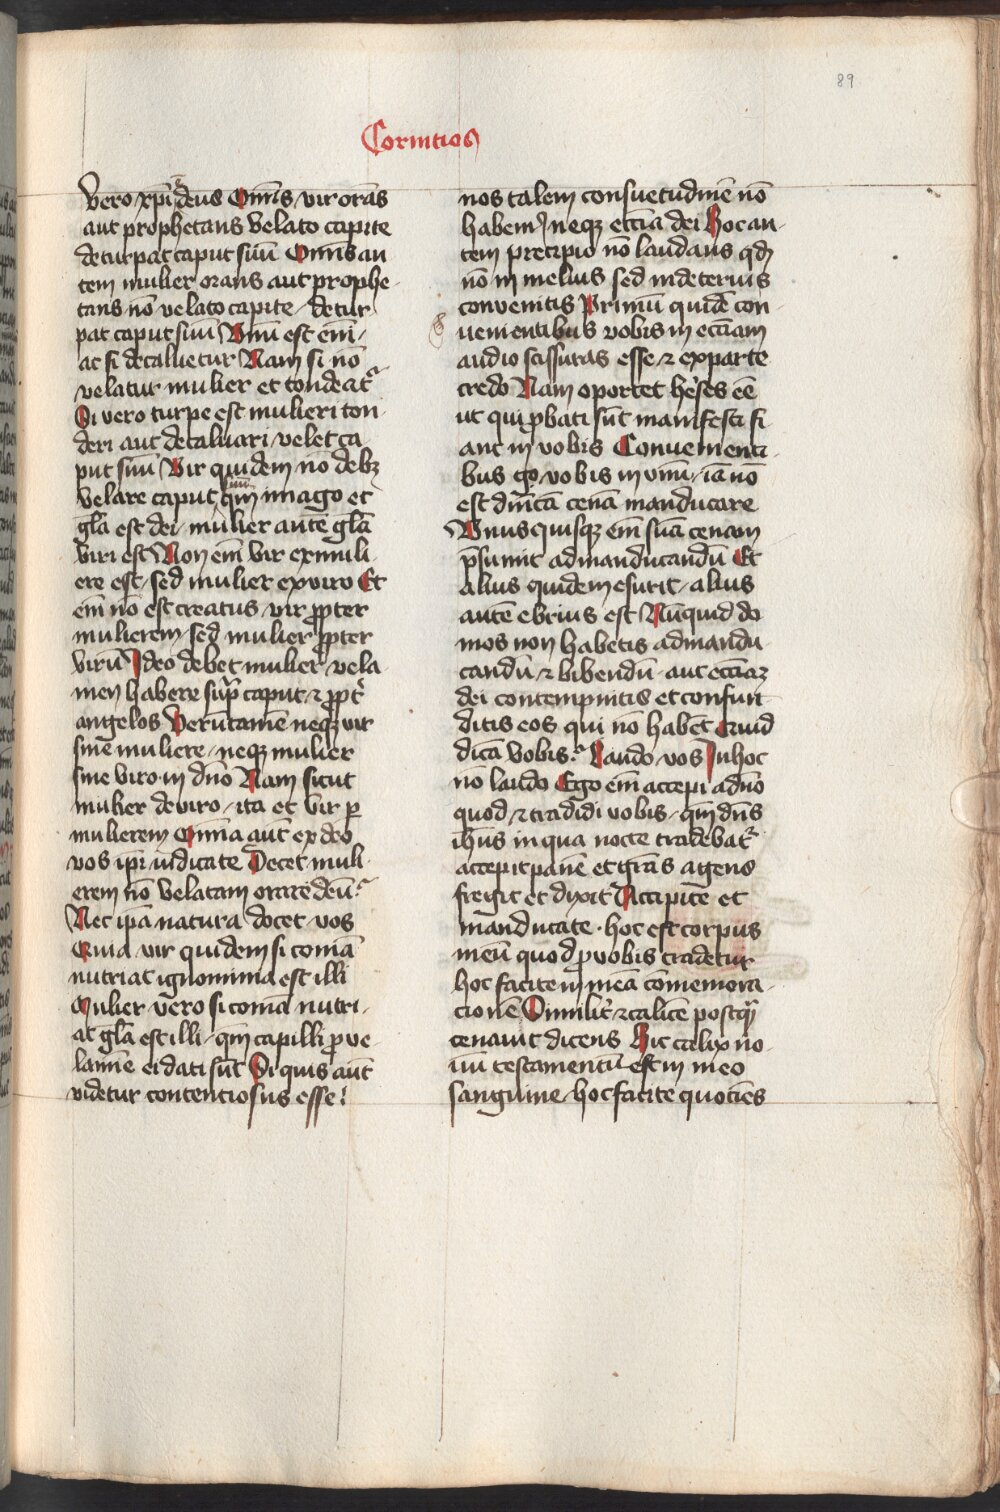 89
Corintios
Vero xpi deus Omīs vir orās
aut prophetans velato capite
deturpat caput suū Omīs au
tem mulier orans aut prophe
tans nō velato capite / detur
pat caput suū Unū est eni /
ac si decaluetur Nam si nō
velatur mulier et tondeatr
Si vero turpe est mulieri ton
deri aut decaluari velet ca
put suū Vir quidem nō debꝫ
velare caput qm̄ imago et
gl̄a est dei / mulier autē gl̄a
viri est Non em̄ vir ex muli
ere est / sed mulier ex viro Et
em̄ nō est creatus vir ꝓpter
mulierem sed mulier ꝓpter
virū Ideo debet mulier vela
men habere sup̄ caput ⁊ ꝓpt̄
angelos Verūtamē neqꝫ vir
sine muliere / neqꝫ mulier
sine viro in dn̄o Nam sicut
mulier de viro / ita et vir ꝑ
mulierem Om̄ia aut̄ ex deo
vos ip̄i iudicate Decet muli
erem nō velatam orare deū?
Nec ip̄a natura docet vos
Quia vir quidem si comā
nutriat ignominia est illi
Mulier vero si comā nutri
at gl̄a est illi / qm̄ capilli ꝓ ve
lamē ei dati sūt Si quis aūt
videtur contentiosus esse /
nos talem consuetudinē nō
habemꝰ neqꝫ eccīa dei Hoc au
tem precipio nō laudans qd̄
nō in melius sed in deterius
convenitis Primū quidē con
uenientibus vobis in eccīam
audio scissuras esse ⁊ ex parte
credo Nam oportet hēses eē
ut qui ꝓbati sūt manifesti fi
ant in vobis Conuenienti
bus go vobis in vnū / iā nō
est dn̄icā cenā manducare
Unusquisqꝫ em̄ suā cenam
p̄sumit ad manducandū Et
alius quidem esurit / alius
autē ebrius est Nūquid do
mos non habetis ad mandu
candū ⁊ bibendū / aut eccīaꝫ
dei contempnitis et confun
ditis eos qui nō habēt Quid
dicā vobis? Laudo vos In hoc
nō laudo Ego em̄ accepi a dn̄o
quod ⁊ tradidi vobis / qm̄ dn̄s
ih̄us in qua nocte tradebatr
accepit panē et grās agens
fregit et dixit Accipite et
manducate · hoc est corpus
meū quod ꝓ vobis tradetur
hoc facite in meā cōmemora
cionē Similit̄ ⁊ calicē postqͣ
cenauit dicens Hic calix no
uū testamentū est in meo
sanguine / hoc facite quociēs